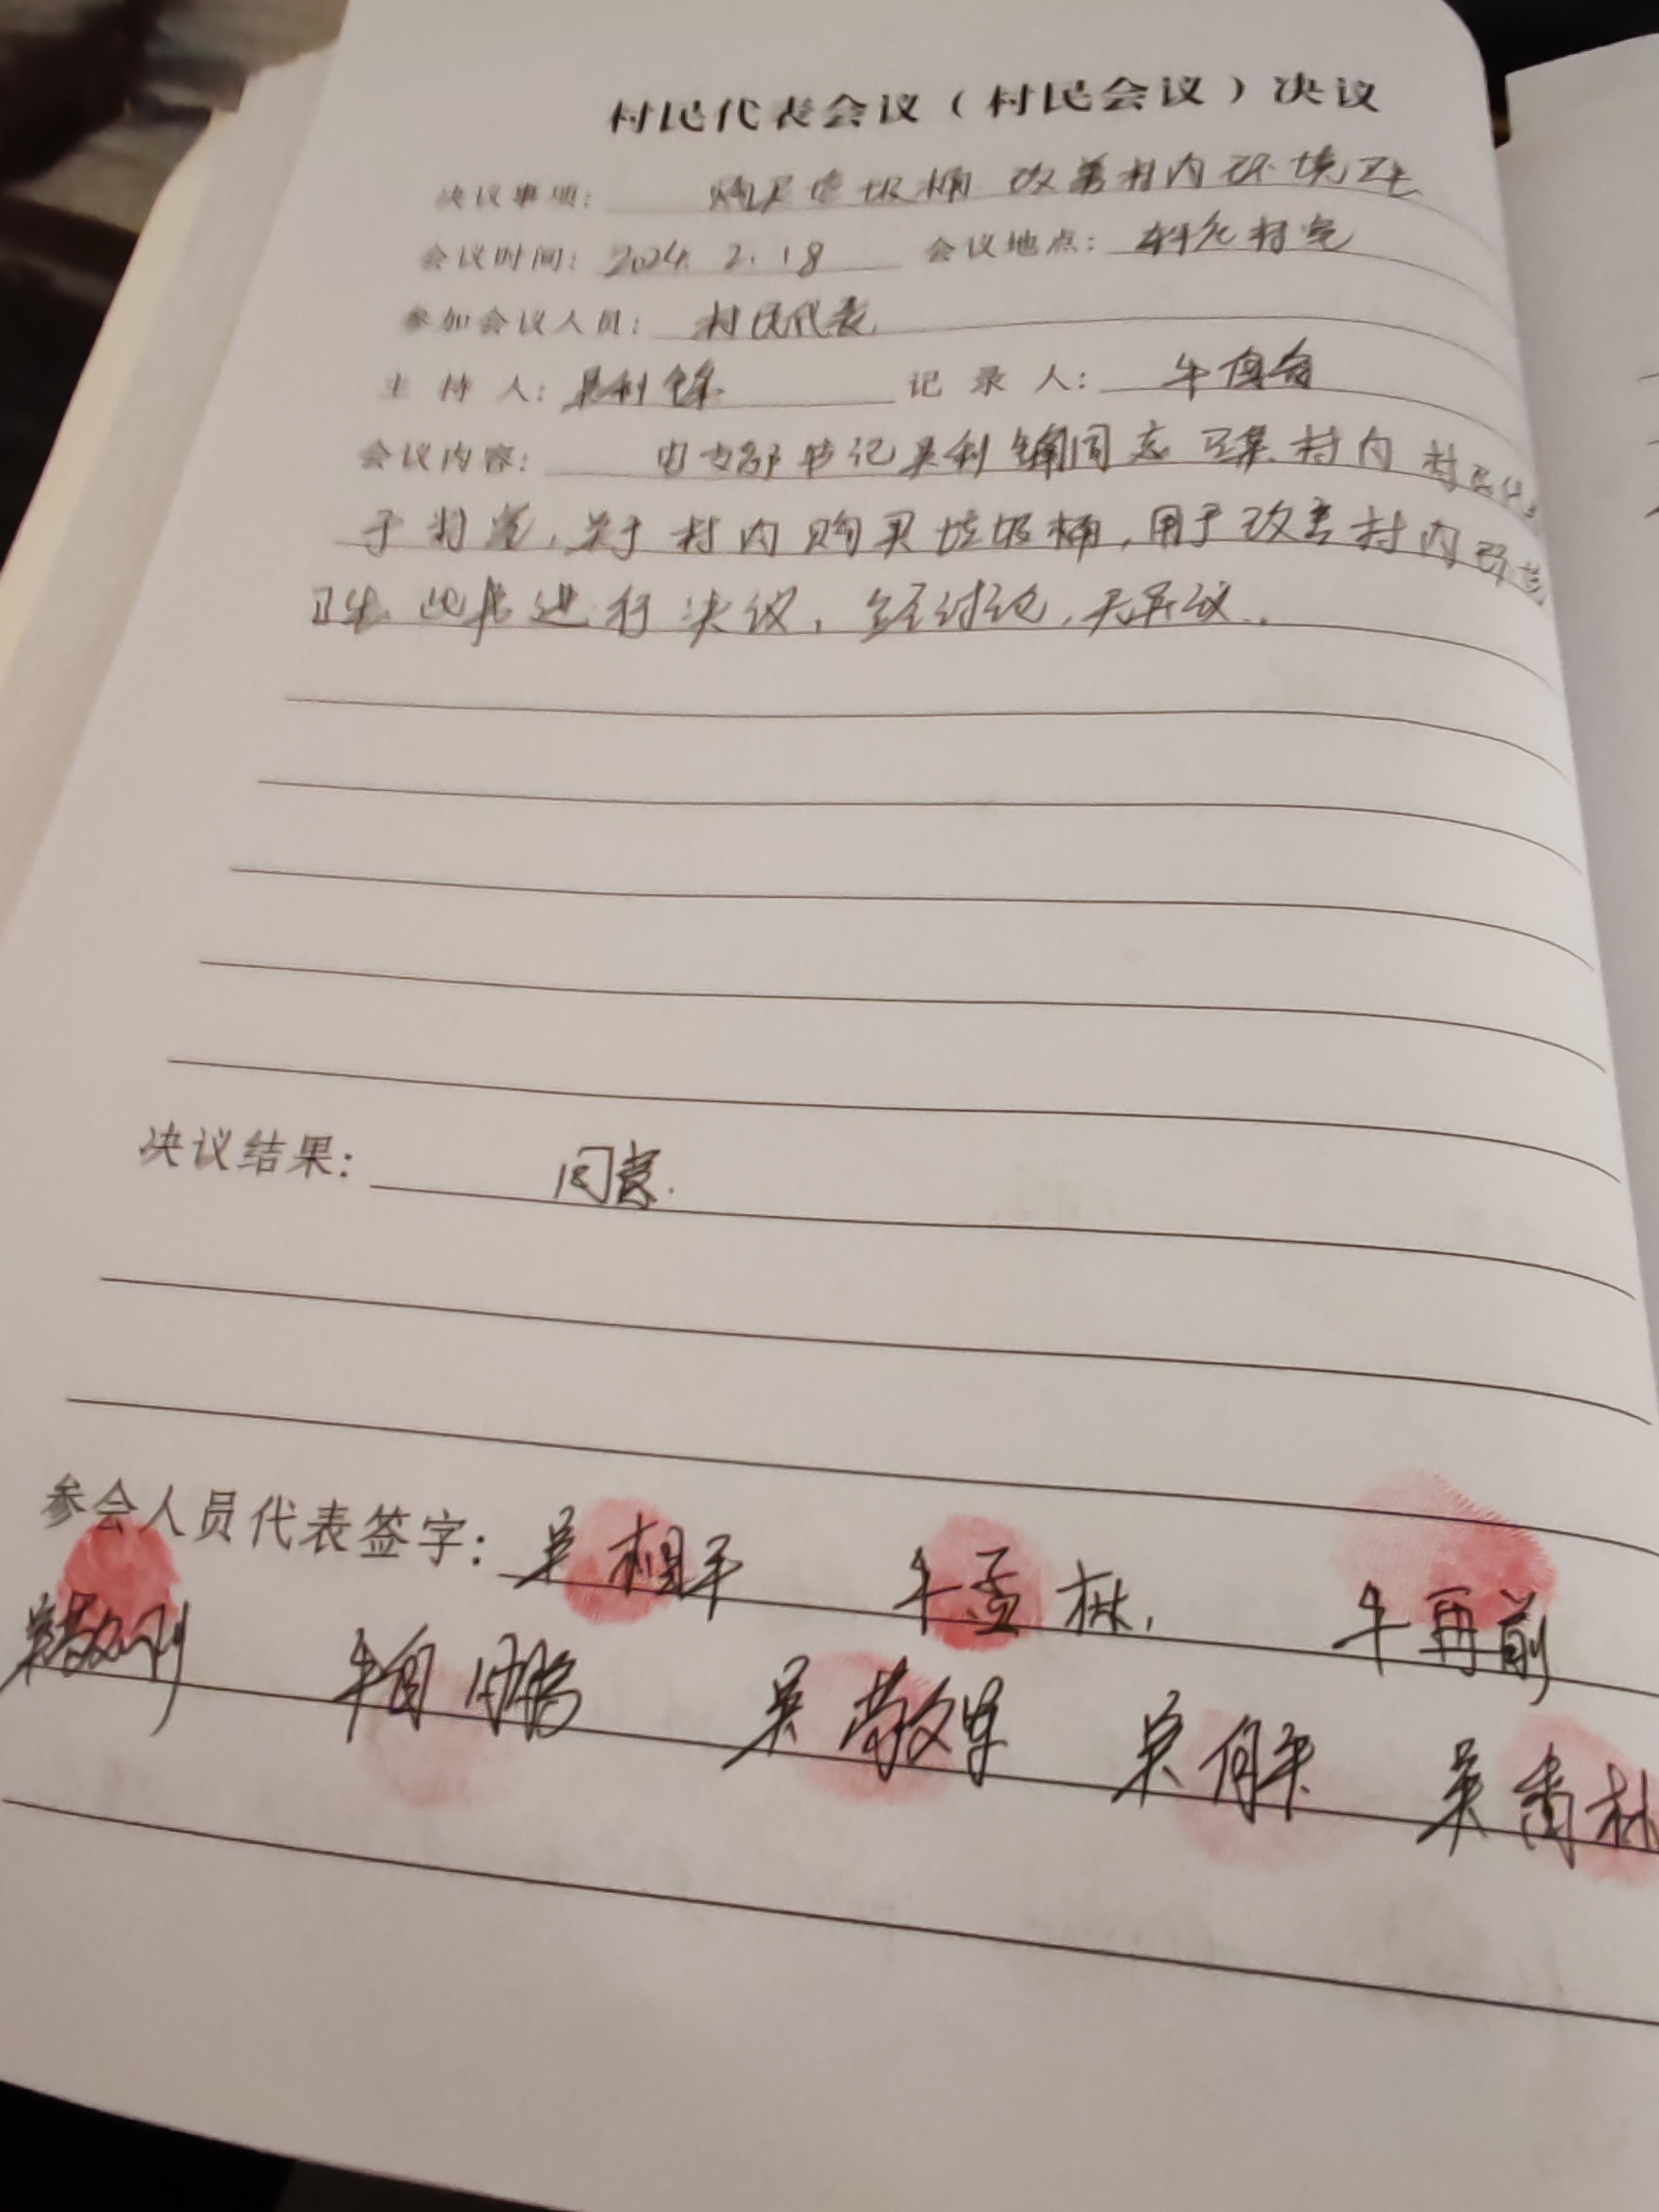 村民代表会议（村民会议）决议
决议事项： 购买垃圾桶 改善村内环境卫生
会议时间：2024. 2. 18 会议地点：
参加会议人员：村民代表
主持人：吴利锋 记录人：牛
会议内容： 由支部书记吴利锋同志召集村内村民代表
于村室，关于村内购买垃圾桶，用于改善村内环境
卫生此事进行决议，经讨论，无异议．
决议结果： 同意．
参会人员代表签字：吴相平 牛孟林． 牛再前
吴敬刚 牛自鹏 吴敬军 吴香林